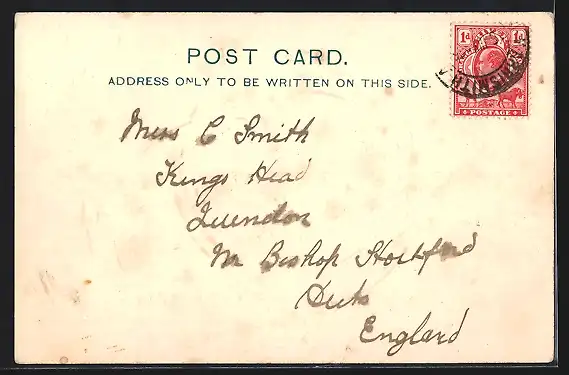 POST CARD.
ADDRESS ONLY TO BE WRITTEN ON THIS SIDE.
1d 1d
POSTAGE
Miss C Smith
Kings Head
Quendon
Nr Bishop Stortford
Herts
England